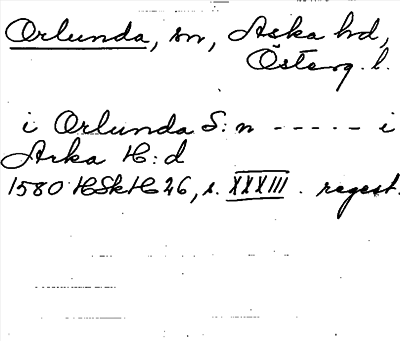 Orlunda, sn, Aska hd,
Österg. l.
i Orlunda S:n ----- i
Aska H:d
1580 HSkH 26, s. XXXIII. regest.